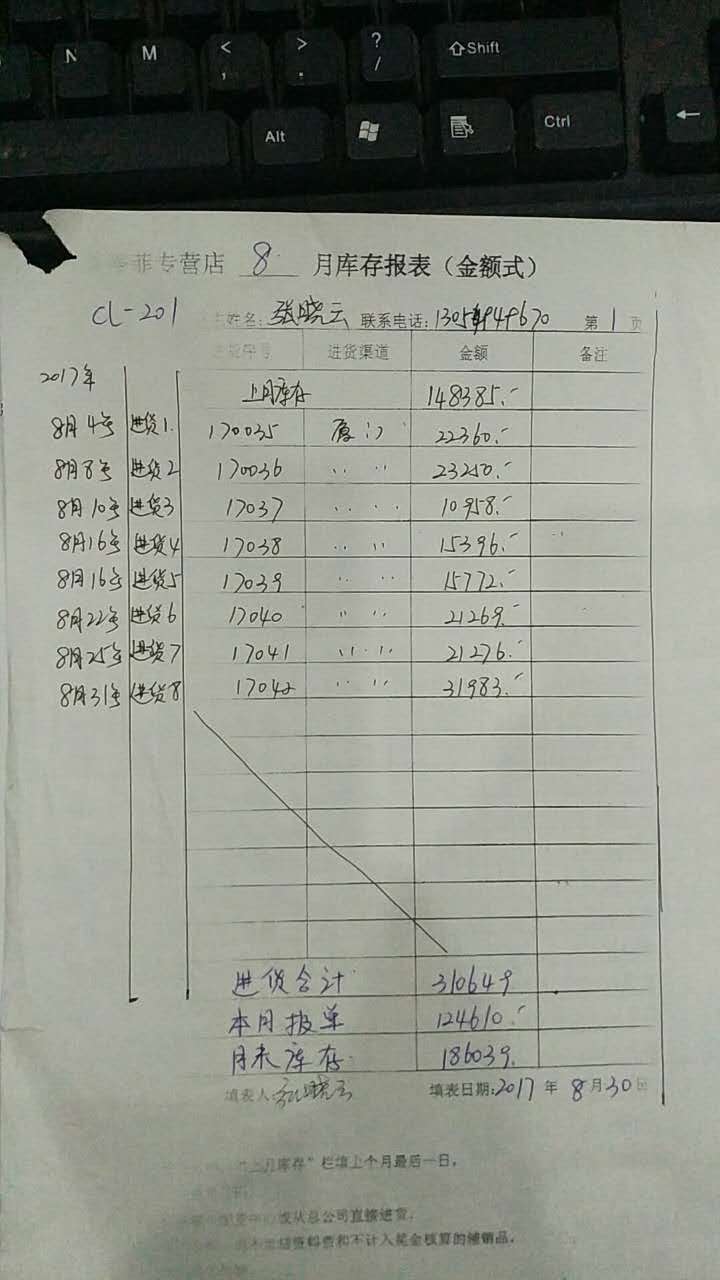 N M < , > . ? / ⇧Shift
Alt Ctrl ←
菲专营店 8 月库存报表（金额式）
CL-201 姓名: 张晓云 联系电话: 第 1 页
序号 进货渠道 金额 备注
2017年 上月库存 148385.-
8月4号 进货1. 170035 厦门 22360.-
8月8号 进货2 170036 〃 〃 23250.-
8月10号 进货3 17037 〃 〃 10958.-
8月16号 进货4 17038 〃 〃 15396.-
8月16号 进货5 17039 〃 〃 15772.-
8月22号 进货6 17040 〃 〃 21269.-
8月25号 进货7 17041 〃 〃 21276.-
8月31号 进货8 17042 〃 〃 31983.-
进货合计 310649
本月报单 124610.-
月末库存 186039.
填表人 张晓云 填表日期:2017 年 8月30日
"上月库存"栏填上个月最后一日，
或从总公司直接进货.
资料费和不计入奖金核算的辅销品.